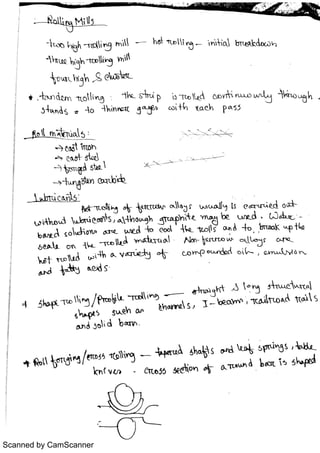 Rolling Mills
-two high-rolling mill — hot rolling — initial breakdown
-three high-rolling mill
four high, & cluster
. tandem rolling : The strip is rolled continuously through
stands & to thinner gages with each pass
Roll materials :
→ cast iron
→ cast steel
→ forged steel
→ tungsten carbide
Lubricants:
Hot rolling of ferrous alloys usually is carried out
without lubricants, although graphite may be used. Water -
based solutions are used to cool the rolls and to, break up the
scale on the rolled material Non-ferrous alloys are
hot rolled with a variety of compounded oils, emulsion
and fatty acids
Shape rolling/profile rolling — straight & long structural
shapes such as channels, I-beam, railroad rails
and solid bars.
Roll forging/cross rolling — tapered shafts and leaf springs, table
knives - cross section of a round bar is shaped
Scanned by CamScanner